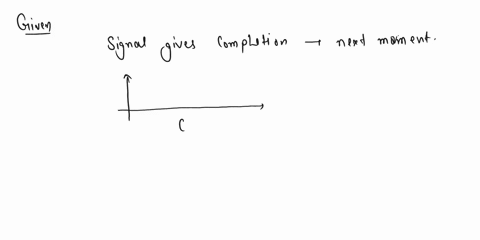 Given
Signal gives completion → next moment.
C